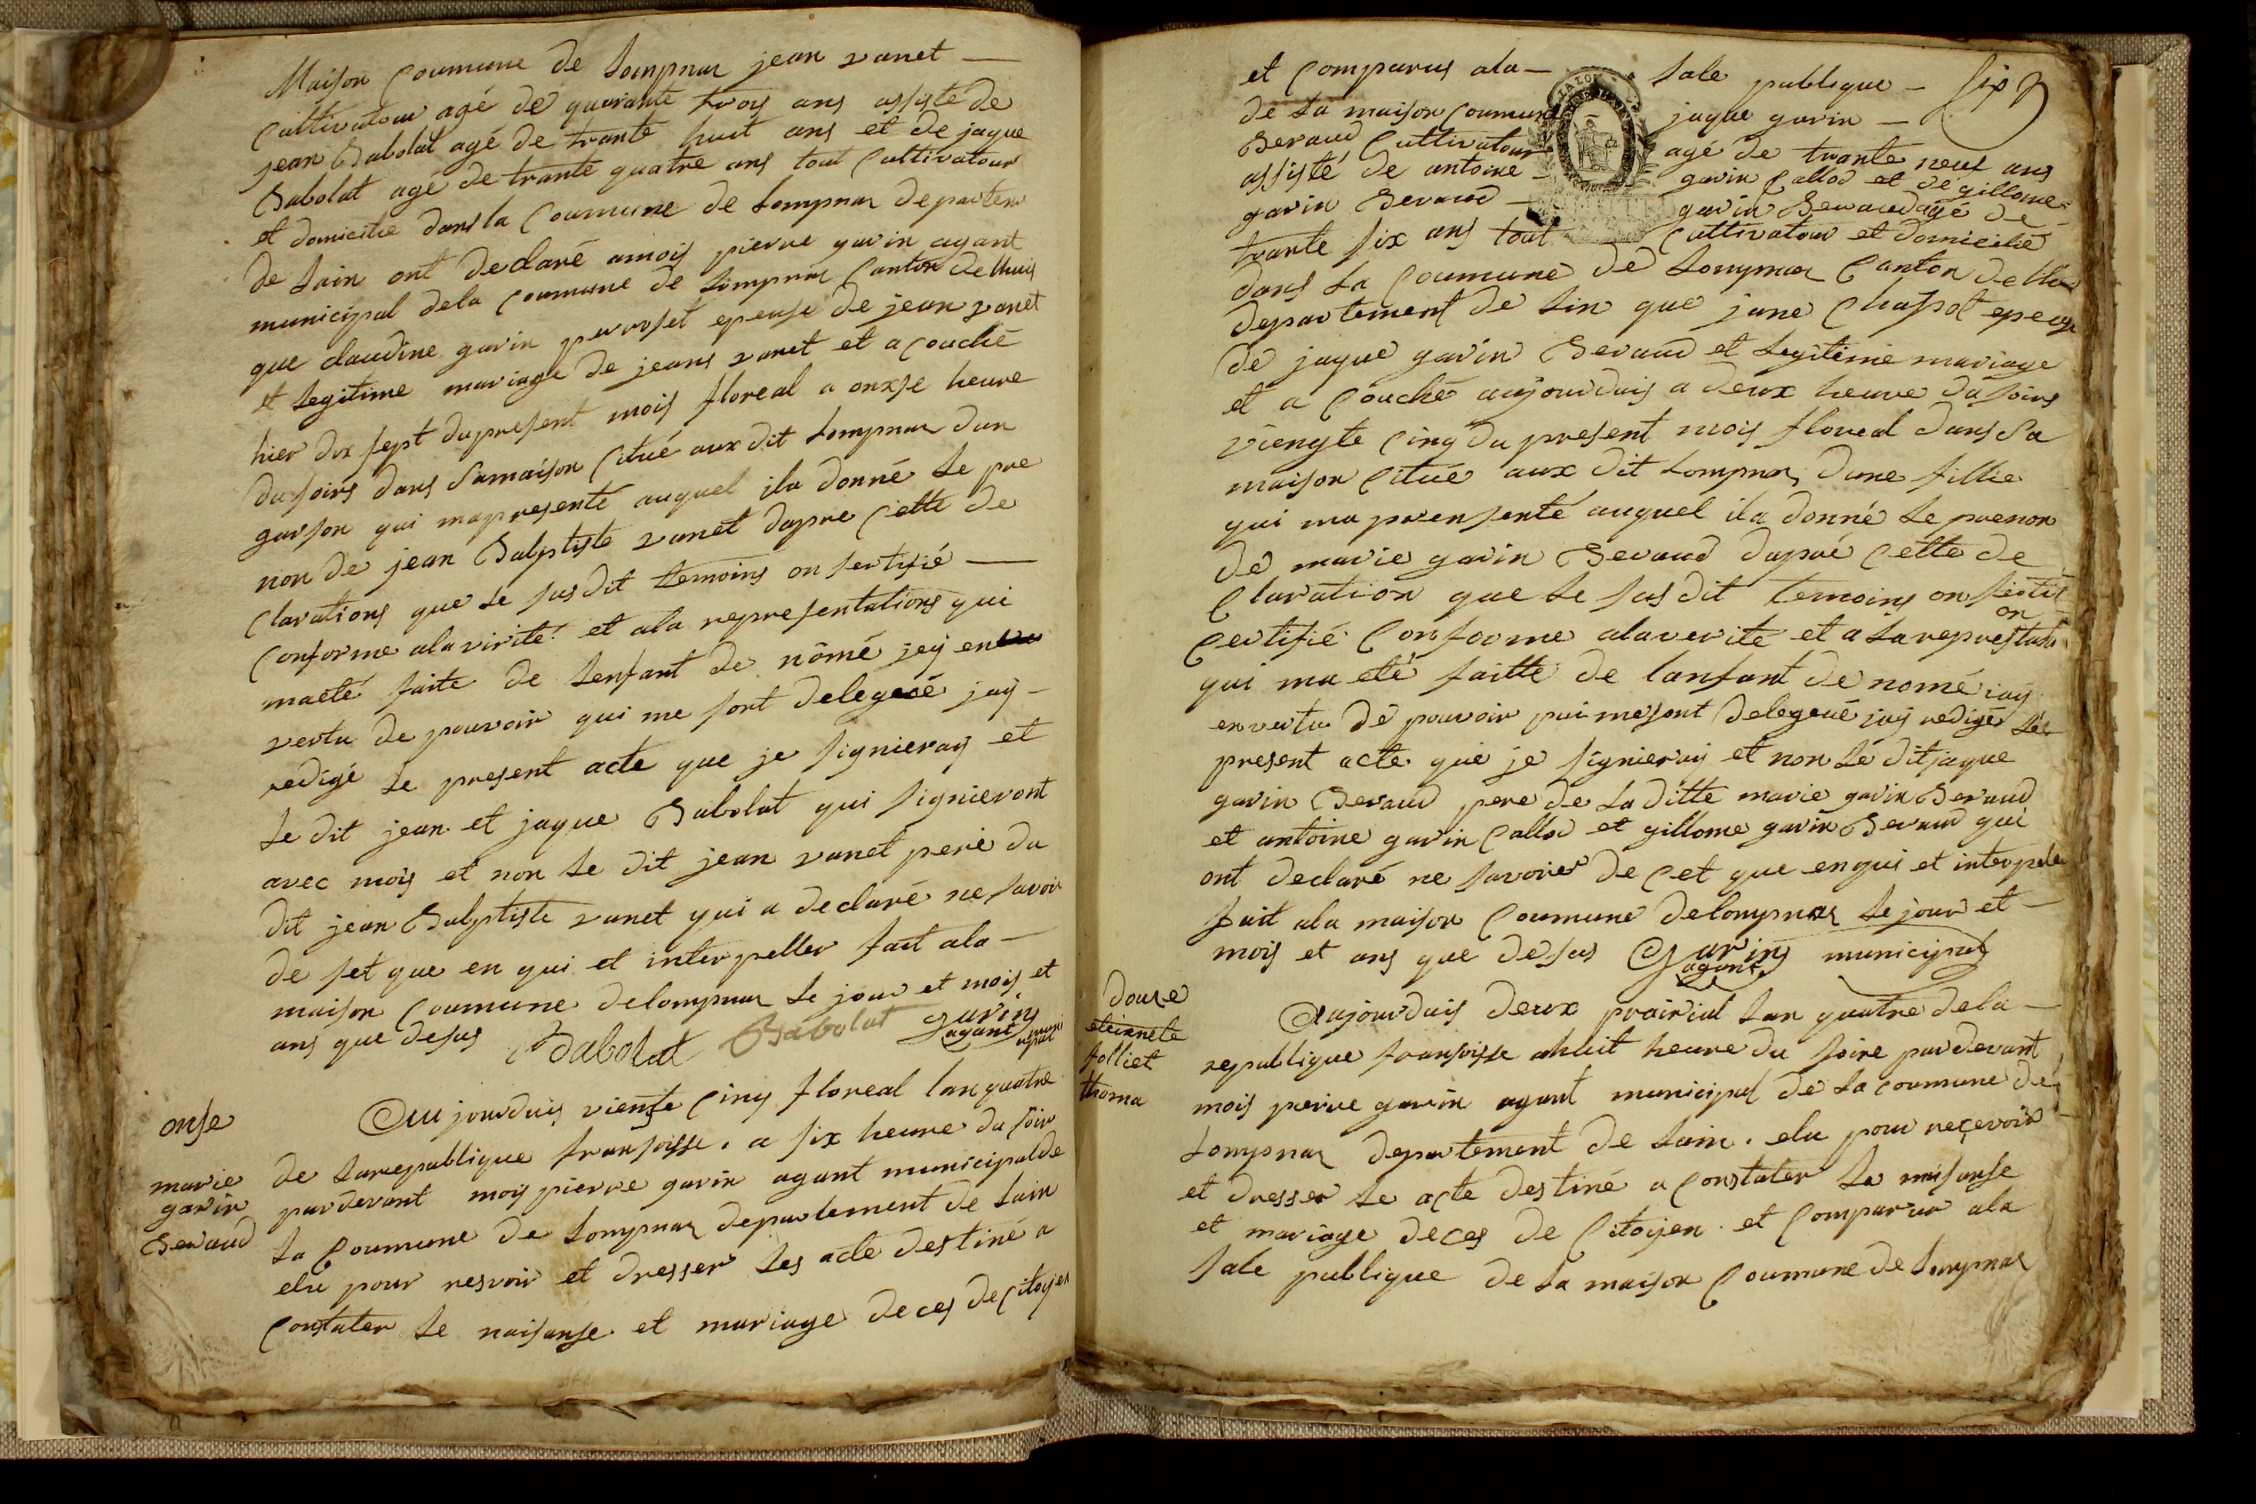 Maison Coumune de Lompnas jean vanet —
Cultivatour agé de quarante troys ans assiste de
jean Babolat agé de trante huit ans et de jaque
Babolat agé de trante quatre ans tout Cultivatour
et domicilie dans la Coumune de Lompnas departem
de Lain ont declaré amois pierre gavin agant
municipal dela Coumune de Lompnas Canton de lhuis
que claudine gavin perroset epouse de jean vanet
et Legitime mariage de jeans vanet et a couché
hier dix sept du present mois floreal a onxse heure
du soirs dans Samaison Citué aux dit Lompnas dun
garson qui mapresenté auquel ila donné Le pre
non de jean Babptiste vanet dapre Cette de
Clarations que Le sus dit temoins on sertifié —
Conforme ala virité et ala representations qui
maeté faite de Lenfant de nômé jey en
vertu de pouvoir qui me sont delegeué jay —
redigé Le present acte que je signieray et
Le dit jean et jaque Babolat qui signieront
avec mois et non Le dit jean vanet pere du
dit jean Babptiste vanet qui a declaré ne savoir
de set que en qui et interpeller fait ala —
maison Coumune delompnas Le jour et mois et
ans que desus Babolat Babolat gavin
agant
onse
marie
gavin
Beraud
Aujourduis viente Cinq floreal lan quatre
de Larepublique fransoisse . a six heure du soir
pardevant mois pierre gavin agant municipal de
La Coumune de Lompnas departement de Lain
elu pour resvoir et dresser Les acte destiné a
Constater Le naisanse et mariage deces de Citoyen
et Comparus ala — Sale publique — six
de La maison Coumune jaque gavin —
Beraud Cultivatour agé de trante neuf ans
assisté de antoine — gavin Callod et de gillome
gavin Beraud — gavin Beraud agé de
trante six ans tout Cultivatour et domicilié
dans La Coumune de Lompnas Canton de lhui
departement de Lin que jane Chapot epeuse
de jaque gavin Beraud et Legitime mariage
et a Couché aujourduis a deux heure du soirs
viengte Cinq du present mois floreal dans Sa
maison Citué aux dit Lompnas dune fillie
qui ma prensenté auquel ila donné Le prenon
de marie gavin Beraud dapré Cette de
Claration que Le sus dit temoins on
on
Certifié Conforme alaverité et a La
qui ma eté faitte de lanfant de nomé jay
envertu de pouvoir qui mesont delegeué jay redigé Le
present acte que je signieray et non Le dit jaque
gavin Beraud pere de La ditte marie gavin Beraud
et antoine gavin Callod et gillome gavin Beraud qui
ont declaré ne savoier de Cet que enqui et interpelé
fait ala maison Coumune delompnas Le jour et —
mois et ans que desus Gavin municipal
agant
douse
etiennete
folliet
thoma
Aujourduis deux prairial Lan quatre dela —
republique fransoisse ahuit heure du soire pardevant
mois pierre gavin agant municipal de La coumune de
Lompnas departement de Lain . elu pour reçevoir
et dresser Le acte destiné a Constater La naisanse
et mariage deces de Citoyen . et Comparur ala
Sale publique de La maison Coumune de Lompnas